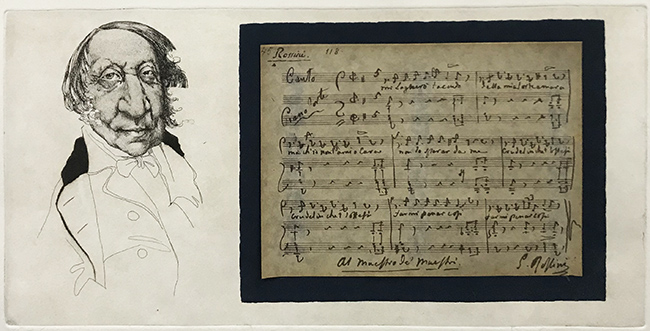 Rossini. 118
Canto
mi lagnerò tacendo della mia sorte amara
Piano forte
ma ch'io non t'ami o cara non lo sperar da me
Crudel in che t'offesi farmi penar così farmi penar così
Al Maestro de' Maestri. G. Rossini